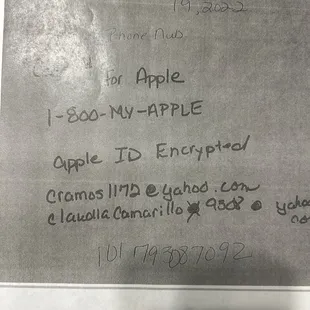 19, 2022
Phone Num
for Apple
1-800-MY-APPLE
Apple ID Encrypted
cramos1172@yahoo.com
claudiaCamarillo 9508@ yahoo
101793087092